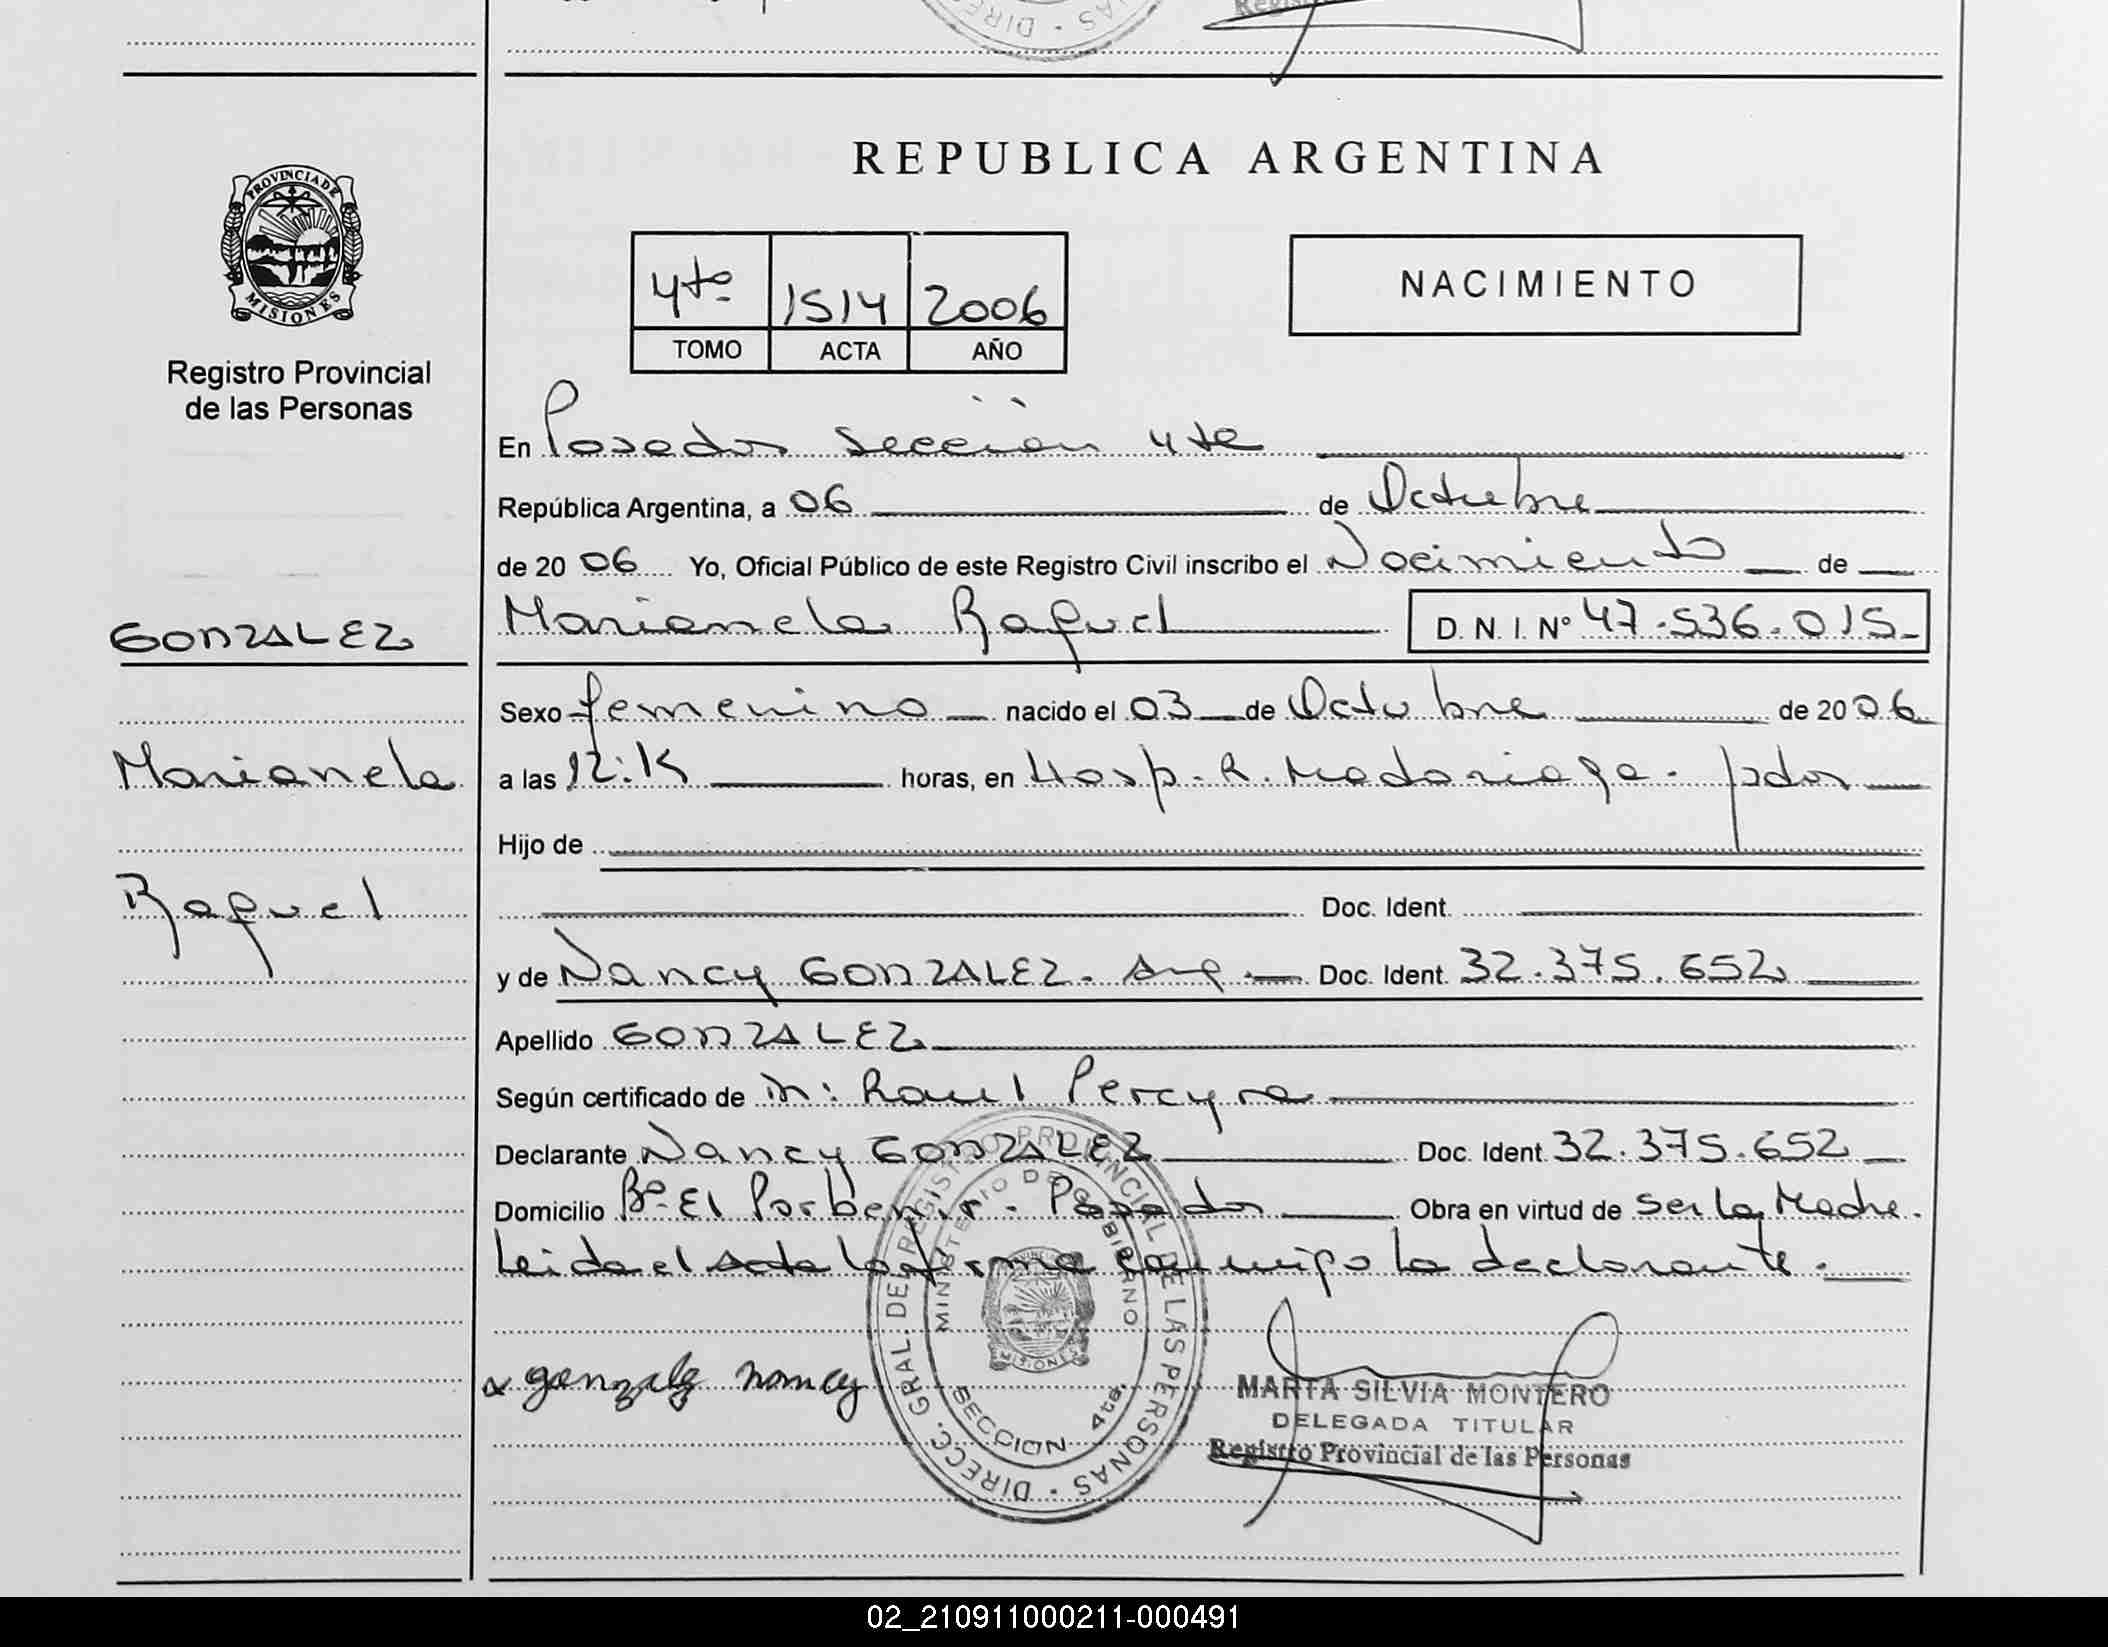 PROVINCIA DE
MISIONES
Registro Provincial
de las Personas
GONZALEZ
Marianela
Raquel
REPUBLICA ARGENTINA
4ta 1514 2006
TOMO ACTA AÑO
NACIMIENTO
En Posadas Sección 4ta
República Argentina, a 06 de Octubre
de 20 06 Yo, Oficial Público de este Registro Civil inscribo el Nacimiento de
Marianela Raquel D. N. I. Nº 47.536.015
Sexo femenino nacido el 03 de Octubre de 20 06
a las 12:15 horas, en Hosp. R. Madariaga. pdas
Hijo de
Doc. Ident.
y de Nancy GONZALEZ. Arg. Doc. Ident. 32.375.652
Apellido GONZALEZ
Según certificado de Raul Pereyra
Declarante Nancy GONZALEZ Doc. Ident 32.375.652
Domicilio Bº El Porbenir. Posadas Obra en virtud de ser la Madre.
Leida el Acta la firma conmigo la declarante.
gonzalez nancy
DIRECC. GRAL. DEL REGISTRO PROVINCIAL DE LAS PERSONAS
MINISTERIO DE GOBIERNO
MISIONES
SECCION 4ta.
MARTA SILVIA MONTERO
DELEGADA TITULAR
Registro Provincial de las Personas
02_210911000211-000491